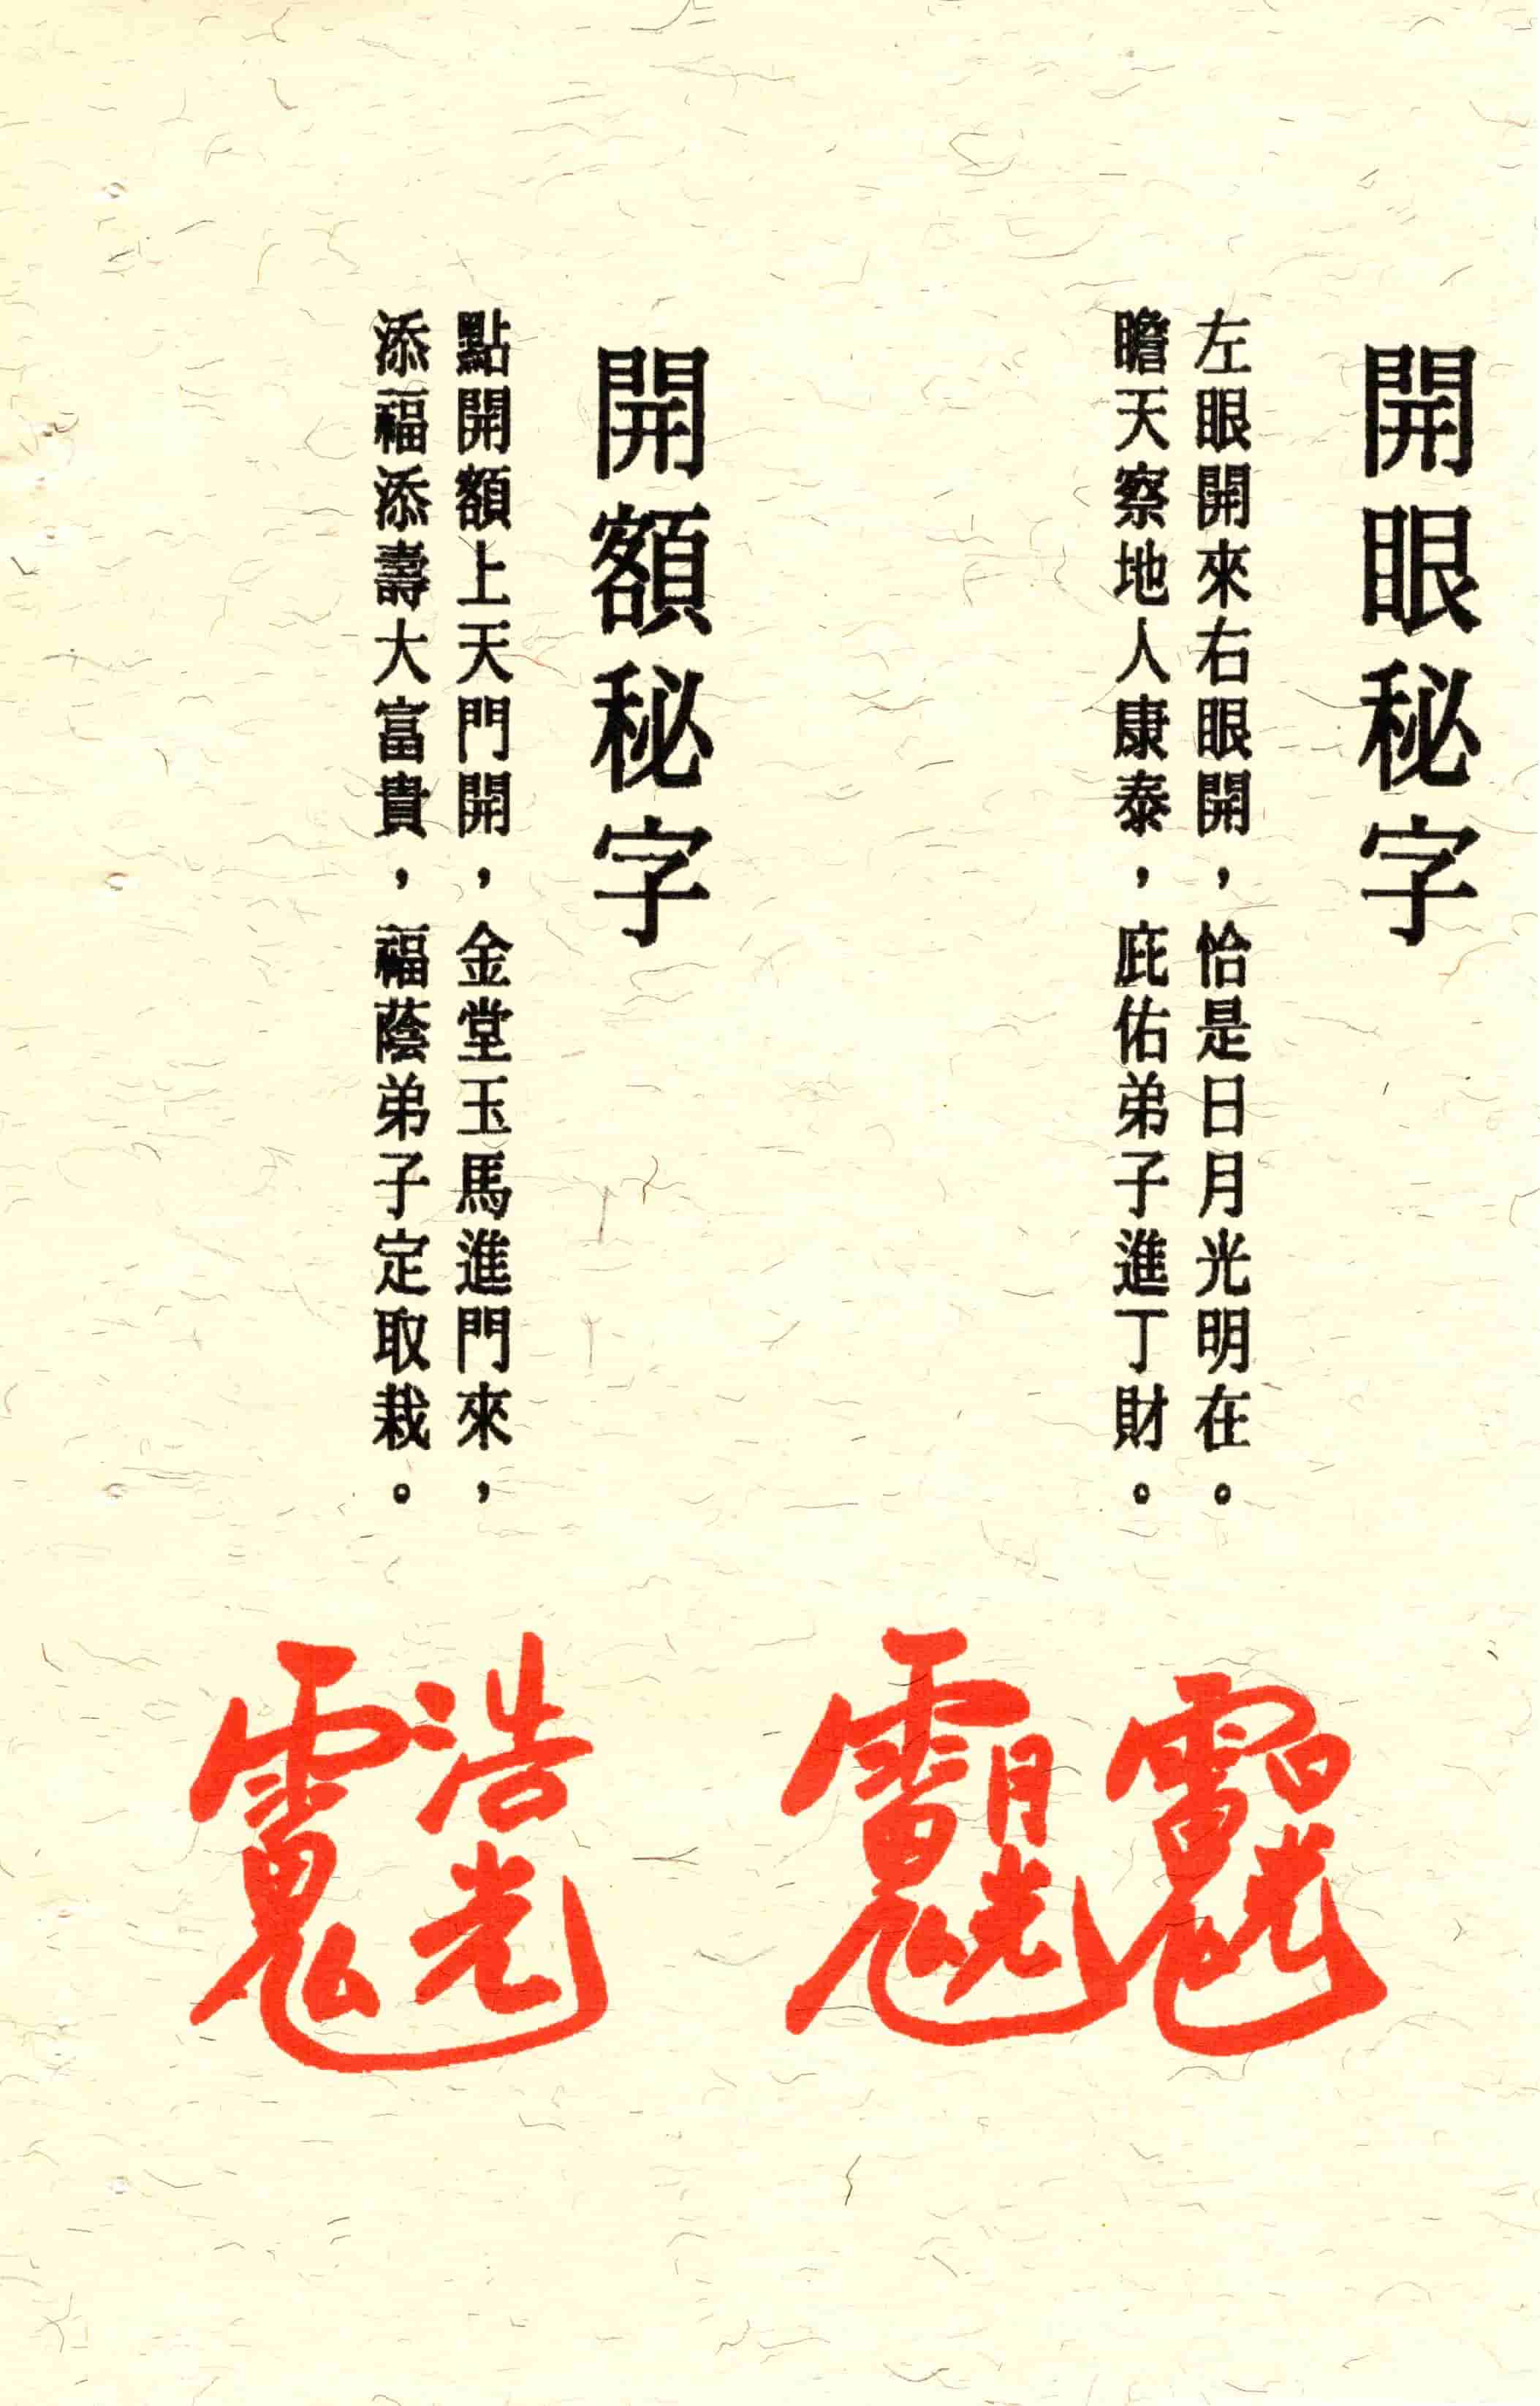 開眼秘字
左眼開來右眼開，恰是日月光明在。
瞻天察地人康泰，庇佑弟子進丁財。
開額秘字
點開額上天門開，金堂玉馬進門來，
添福添壽大富貴，福蔭弟子定取栽。